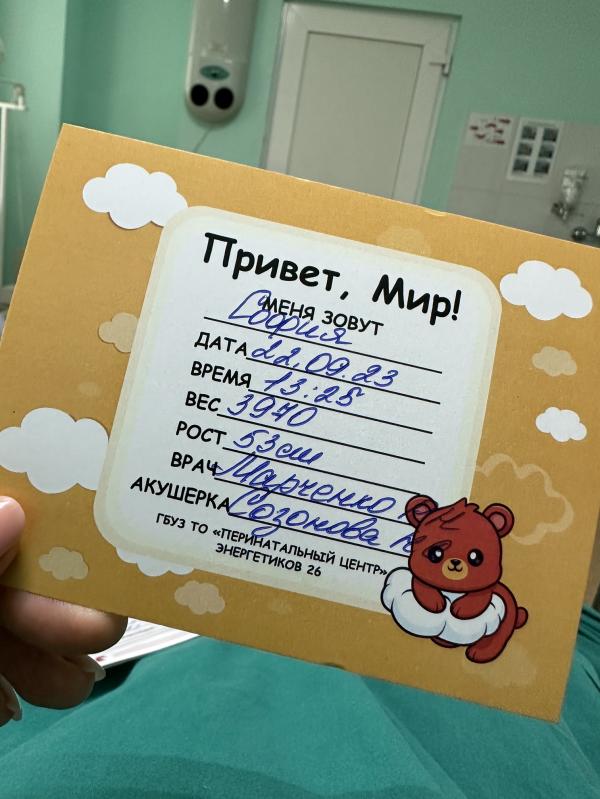 Привет, Мир!
МЕНЯ ЗОВУТ
София
ДАТА 22.09.23
ВРЕМЯ 13:25
ВЕС 3970
РОСТ 53см
ВРАЧ Марченко
АКУШЕРКА Созонова
ГБУЗ ТО «ПЕРИНАТАЛЬНЫЙ ЦЕНТР»
ЭНЕРГЕТИКОВ 26